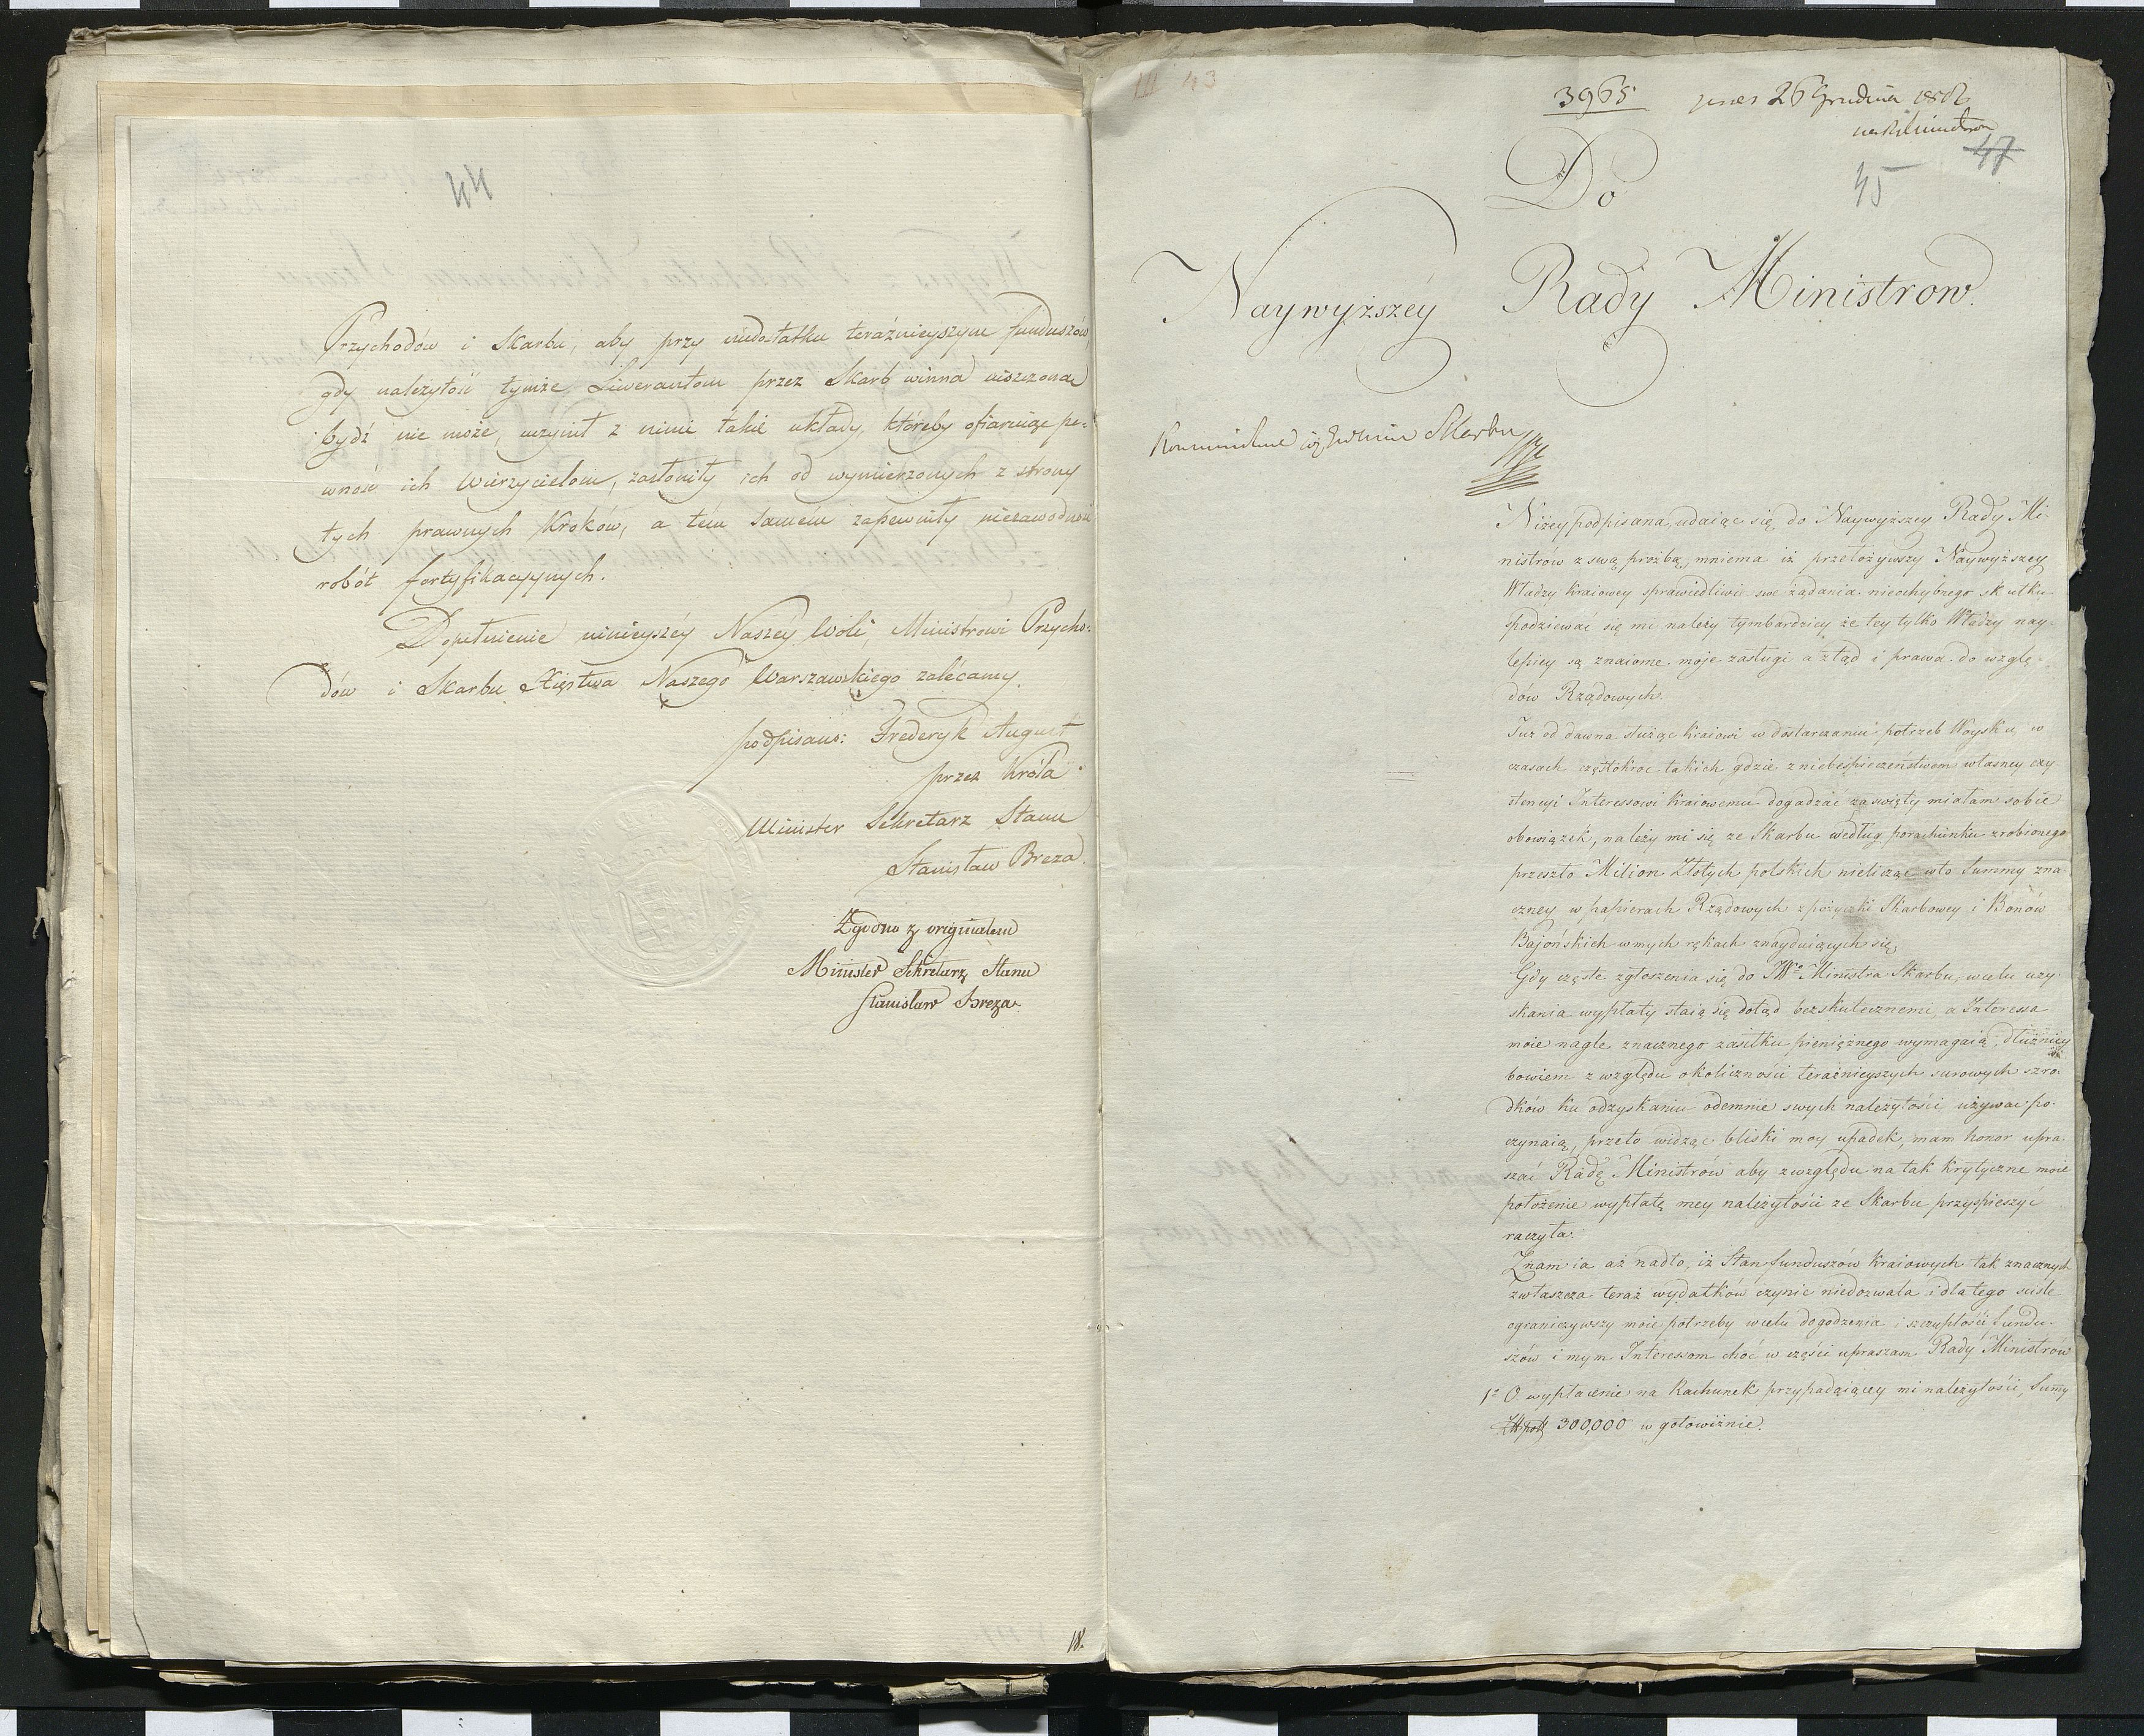 44
Przychodów i Skarbu, aby przy niedostatku teráźnieyszym funduszów,
gdy należytość tymże Liwerantom przez Skarb winna uiszczona
bydź nie może, uczynił z nimi takie układy, któreby ofiaruiąc pe-
wność ich Wierzycielom, zasłoniły ich od wymierzonych z strony
tych prawnych kroków, a tém samém zapewniły niezawodność
robót fortyfikacyynych.
Dopełnienie ninieyszéy Naszey Woli, Ministrowi Przycho-
dów i Skarbu Xięstwa Naszego Warszawskiego zalécamy.
podpisano: Frederyk August
przez Króla
Minister Sekretarz Stanu
Stanisław Breza.
Zgodno z originałem
Minister Sekretarz Stanu
Stanisław Breza
18.
III 43
3965. 26 Grudnia
47
45
Do
Naywyższéy Rady Ministrow.
Skarbu
Niżey podpisana, udaiąc się do Naywyższey Rady Mi-
nistrów z swą prożbą, mniema iż przełożywszy Naywyższey
Władzy Kraiowey sprawiedliwe swe żądania nieochybnego skutku
spodziewać się mi należy tymbardziey że tey tylko Władzy nay-
lepiey są znaiome moje zasługi a ztąd i prawa do wzglę-
dów Rządowych.
Już od dawna służąc Kraiowi w dostarczaniu potrzeb Woysku, w
czasach częstokroc takich gdzie z niebespieczeństwem własney exy-
stencyi Interessowi Kraiowemu dogadzać za święty miałam sobie
obowiązek, należy mi się ze Skarbu według porachunku zrobionego
przeszło Milion Złotych polskich nielicząc wto Summy zna-
czney w papierach Rządowych z pożyczki Skarbowey i Bonów
Bajońskich w mych rękach znayduiących się,
Gdy częste zgłoszenia się do JW° Ministra Skarbu, w celu uzy-
skania wypłaty staią się dotąd bezskutecznemi, a Interessa
moie nagle znacznego zasiłku pieniężnego wymagaią, dłużnicy
bowiem z względu okoliczności teraźnieyszych surowych szro-
dków ku odzyskaniu odemnie swych należytości używać po-
czynaią, przeto widząc bliski moy upadek, mam honor upra-
szać Radę Ministrów aby z względu na tak krytyczne moie
położenie wypłatę mey należytości ze Skarbu przyspieszyć
raczyła.
Znam ia aż nadto, iż Stan funduszów Kraiowych tak znacznych
zwłaszcza teraz wydatków czynic niedozwala i dla tego scisle
ograniczywszy moie potrzeby w celu dogodzenia i szczupłości fundu-
szów i mym Interessom choć w części upraszam Rady Ministrów
1° O wypłacenie na Rachunek przypadaiącey mi należytości, Summy
300,000 w gotowiźnie.